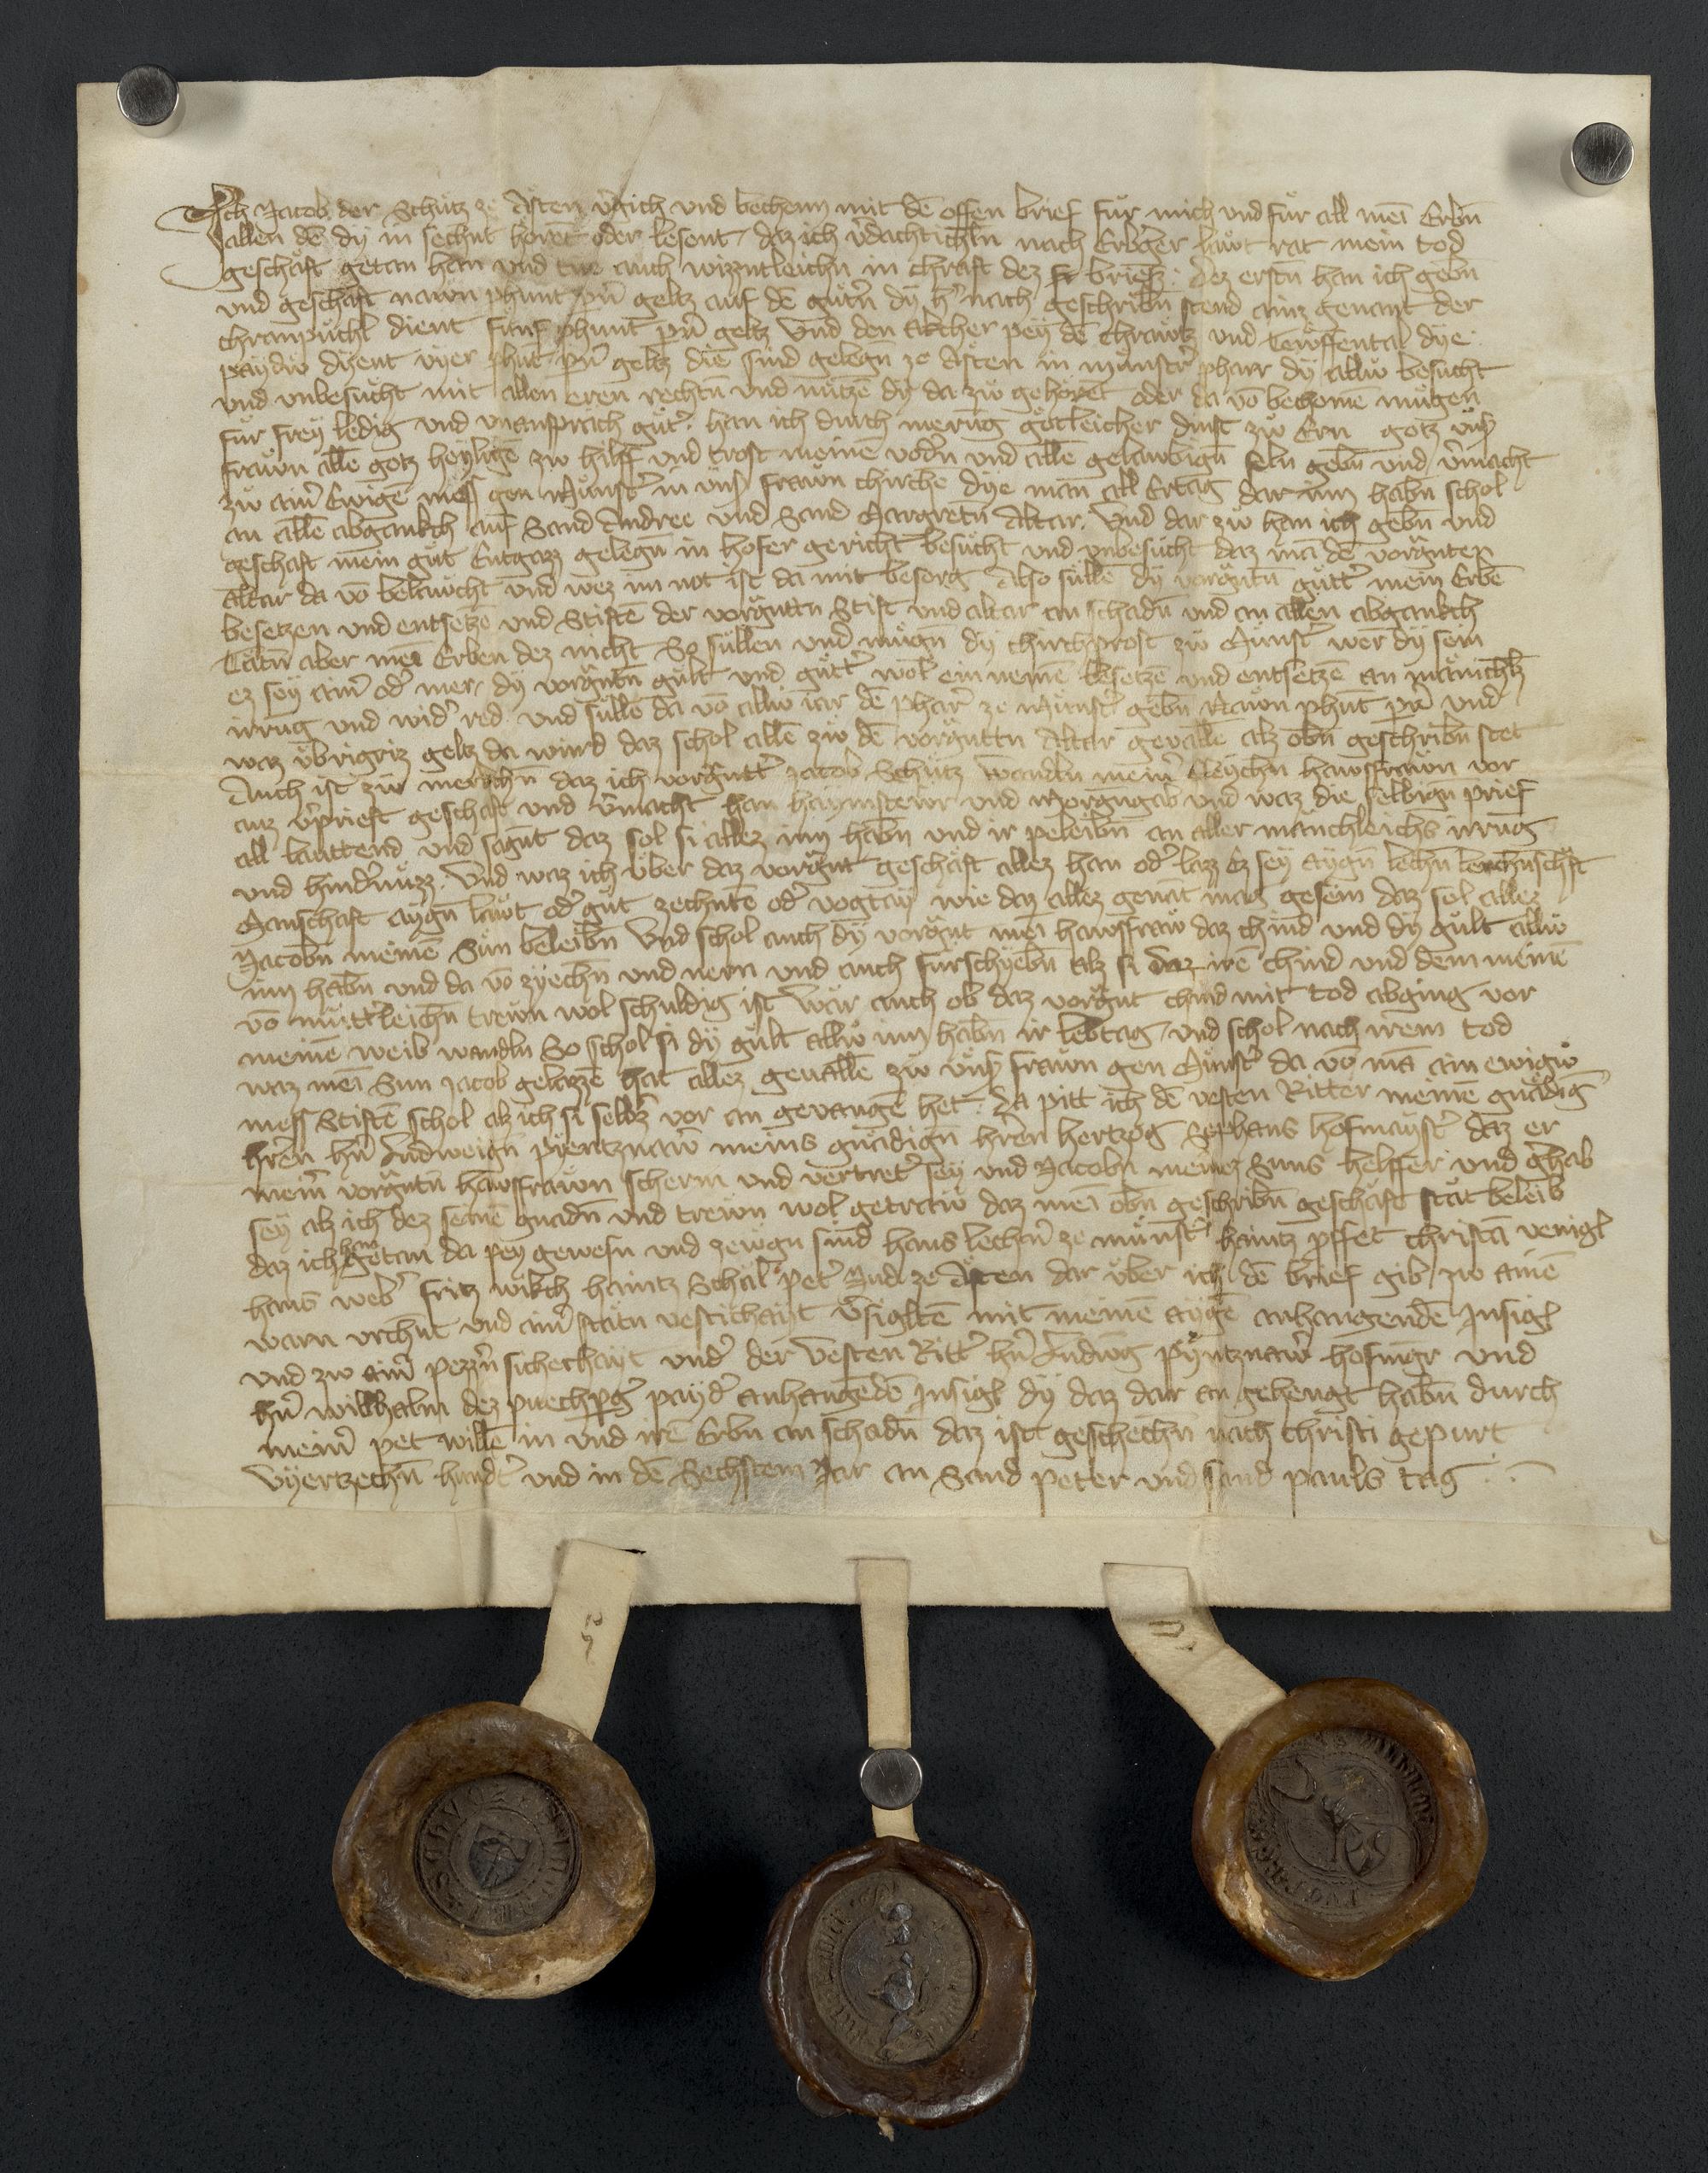 Ich Jacob der Schütz ze Ästen v̓gich vnd bechenn mit dē offen brief für mich vnd für all meī Erbn̄
allen dē dÿ in sechnt hörēt oder lesent daz ich v̓dachtichl̄n nach Erbger läwt rat mein tod
geschäft getan han vnd tue auch wizzntleichn̄ in chraft dez briefz: Dez erstn̄ han ich gebn̄
vnd geschäft nawn phunt pn̄ geltz auf dē gütn̄ dÿ h̓nach geschribn̄ stend ainz genant der
chranpüchl dient fünf phunt pn̄ geltz Vnd den akcher peÿ dē Chrawtz vnd Tewffental dÿe
paÿdw dÿent vÿer phūt pn̄ geltz die sind gelegn̄ ze Asten in münstr̓ pharr dÿ allw besücht
vnd vnbesücht mit allen eren rechtn̄ vnd nützē dÿ da zw gehörēt oder da vō bechomē mügen
für freÿ ledig vnd vnansprach güt̓. han ich durch merūg götleicher dinst zw Ern gotz vns̓
frawn allē gotz heÿligē zw hilff vnd trost meinē vodn̓ vnd allē gelawbign̄ seln gebn̄ vnd v̓macht
zw ain̓ Ewigē mess gen Münst̓ in vns̓ frawn chirchē dÿe man all Ertag dar inn habn̄ schol
an allē abgankch auf Sand Andree vnd Sand Margretn̄ Altar. Vnd dar zw han ich gebn̄ vnd
geschaft mein güt Entgazz gelegn̄ in hofer gericht besücht vnd vnbesücht daz mā dē vorgnten
Altar da vō belawcht vnd wez im not ist da mit besorg Also süllē dÿ vorgntn̄ gütt̓ mein Erbē
besetzen vnd entsetzē vnd Stiftē der vorgnttn̄ Stift vnd altar an schadn̄ vnd an allen abgankch
Tätn̄ aber meī Erben dez nicht So süllen vnd mügn̄ dÿ chirchprost zw Münst̓ wer dÿ sein
ez seÿ ain̓ od̓ mer dÿ vorgntn̄ gült vnd gütt̓ wol ein nemē besetzē vnd entsetzē an mänichlz
irrūg vnd wid̓ red vnd süllē da vō allw iar dē phar̓ ze Münst̓ gebn̄ Nawn phūt pn̄ vnd
waz übrigriz geltz da wird daz schol allē zw dē vorgnttn̄ Altar gevallē alz obn̄ geschribn̄ stet
Auch ist zw merchn̄ daz ich vorgntt̓ Jacob Schütz Wandln mein̓ Eleÿchn̄ hawsfrawn vor
anz v̓prieft geschaft vnd v̓macht han haÿmstewr vnd Morgngab vnd waz die selbign̄ prief
all lauttend vnd sagn̄t daz sol si allez inn habn̄ vnd ir peleibn̄ an aller mänchleichs irrūg
vnd hind̓nüzz. Vnd waz ich über daz vorgnt geschäft allez han od̓ lazz Ez seÿ aÿgn̄ lechn̄ lenchnschft
Manschaft aÿgn̄ läwt od̓ güt zechntē od̓ vogtaÿ wie daz allez genāt mag gesein daz sol allez
Jacobn̄ meinē Sun beleibn̄ Vnd schol auch dÿ vorgnt meī hawsfraw daz chind vnd dÿ gült allw
inn habn̄ vnd da vō zÿechn̄ vnd nern vnd auch fürschÿebn̄ alz si daz irē chind vnd dem meinē
vō mütt̓leichn̄ trewn wol schuldig ist Wär auch ob daz vorgnt chind mit tod abging vor
meinē weib wandln So schol si dÿ gült allw inn habn̄ ir lebtag vnd schol nach irem tod
waz meī Sun Jacob gelazzē hat allez geuallē zw vns̓ frawn gen Münst̓ da vō mā ain ewigw
mess Stiftē schol alz ich si selb̓ vor an gevangē het: Da pitt ich dē vesten Ritter meinē gnädiḡ
hrēn hn̄ Ludweign̄ Pÿentznawr̓ meins gnädign̄ hrēn hertzog Stephans hofmaÿst̓ daz er
mein̓ vorgntn̄ hawsfrawn scherm vnd vertret̓ seÿ vnd Jacobn̄ meinez Suns helffer vnd g̓hab
seÿ alz ich dez seinē gnadn̄ vnd trewn wol getraw daz meī obn̄ geschribn̄ geschäft stät beleib
daz ich han getan da peÿ gewesn̄ vnd zewgn̄ sind hans lechn̄ ze münst̓ haintz pffet christā venigl
hans web̓ fritz wikch haintz Schäl pet̓ Rud ze Ästen dar über ich dē brief gib zw ainē
warn vrchūt vnd ain̓ stätn̄ vestichaÿt v̓sigltē mit meinē aÿgē anhangendē Jnsigl
vnd zw ain̓ pezzn̄ sicherhaÿt vnd̓ der Vesten Ritt̓ hn̄ Ludwig Pÿntznawr̓ hofmgr vnd
hn̄ wilhalm dez Puechpg̓ paÿd̓ anhangēdē Jnsigl dÿ daz dar an gehengt habn̄ durch
mein̓ pet willē in vnd irē Erbn̄ an schadn̄ daz ist geschechn̄ nach christi gepurt
Vÿertzechn̄ hundt̓ vnd in dē Sechstem Jar an Sand peter vnd sand pauls tag